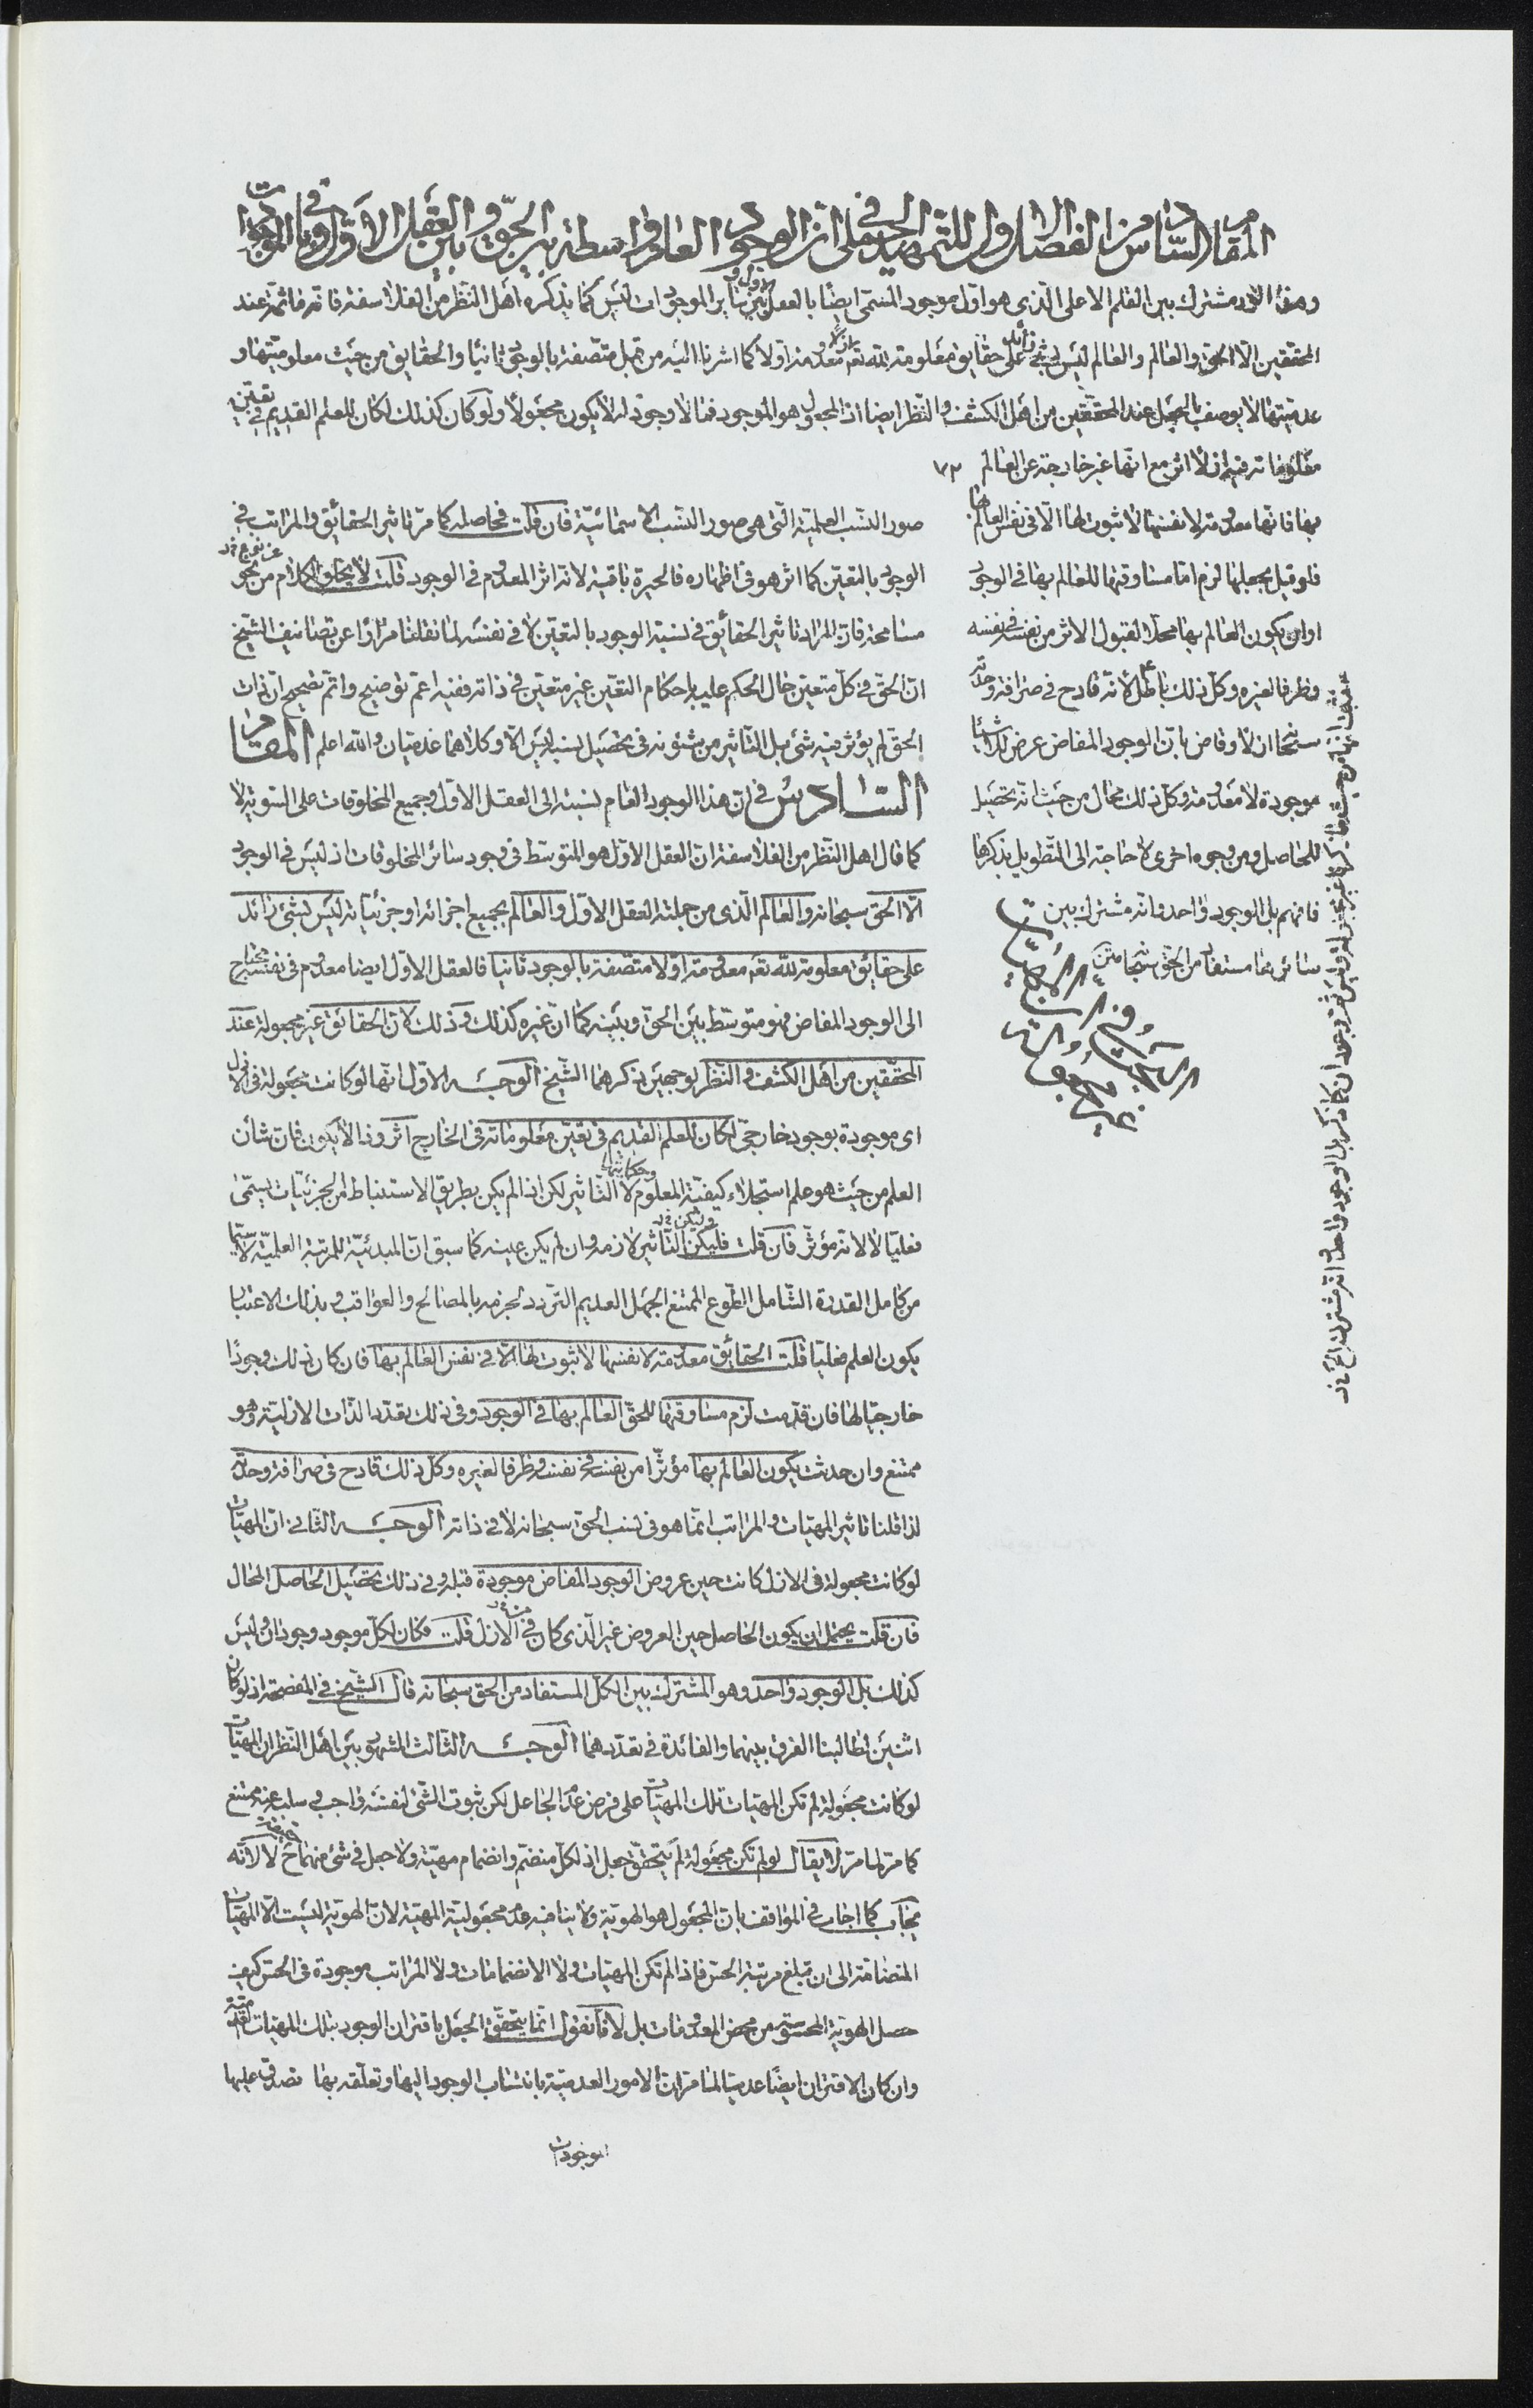 المقام السادس من الفصل الاول للتمهيد الجملى فى ان الوجود العام واسطة بين الحق وبين العقل الاول وفى باقى الموجودات
وهذا الوجود مشترك بين القلم الاعلى الذى هو اول موجود المسمى ايضا بالعقل الاول وبين سائر الموجودات ليس كما يذكره اهل النظر من الفلاسفة فانه ما ثمة عند
المحققين الا الحق والعالم والعالم ليس بشئ زائد على حقايق معلومة لله تعالى ازلا معدومة اولا كما اشرنا اليه من قبل متصفة بالوجود ثانيا والحقايق من حيث معلوميتها و
عدميتها لا يوصف بالجعل عند المحققين من اهل الكشف والنظر ايضا اذ المجعول هو الموجود فما لا وجود له لا يكون مجعولا ولو كان كذلك لكان للعلم القديم فى تعين
معلوماته فيه ازلا اثر مع انها غير خارجة عن العالم ٧٢
بها فانها معدومة لانفسها لا ثبوت لها الا فى نفس العالم بها
فلو قيل بجعلها لزم اما مساوقتها للعالم بها فى الوجود
او ان يكون العالم بها محلا لقبول الاثر من نفسه فى نفسه
وظرفا لغيره وكل ذلك باطل لانه قادح فى صرافة وحدته
سبحانه ازلا وقاض بان الوجود المفاض عرض لاشياء
موجودة لا معدومة وكل ذلك محال من حيث انه تحصيل
للحاصل ومن وجوه اخرى لا حاجة الى التطويل بذكرها
فافهم بل الوجود واحد وانه مشترك بين
سائرها مستفاد من الحق سبحانه
صور النسب العلمية التى هى صور النسب الاسمائية فان قلت فحاصله كما مر تاثير الحقائق والمراتب فى
الوجود بالتعين كما اثر هو فى اظهاره فالحيرة باقية لانه اثر المعدوم فى الوجود قلت لا يخلو الكلام من نحو
مسامحة فان المراد تاثير الحقائق فى نسبة الوجود بالتعين لا فى نفسه لما نقلنا مرارا عن تصانيف الشيخ
ان الحق فى كل متعين حال الحكم عليه باحكام التعين غير متعين فى ذاته ففيه اعم توضيح واتم تصحيح ان ذات
الحق لم يؤثر فيه شئ بل التاثير من شئونه فى تحصيل نسبه ليس الا وكلاهما عدميان والله اعلم المقام
السادس فى ان هذا الوجود العام نسبته الى العقل الاول وجميع المخلوقات على السوية لا
كما قال اهل النظر من الفلاسفة ان العقل الاول هو المتوسط فى وجود سائر المخلوقات اذ ليس فى الوجود
الا الحق سبحانه والعالم الذى من جملته العقل الاول والعالم بجميع اجزائه او جزئياته ليس بشئ زائد
على حقايق معلومة لله تعالى معدومة اولا متصفة بالوجود ثانيا فالعقل الاول ايضا معدوم فى نفسه محتاج
الى الوجود المفاض فهو متوسط بين الحق وبينه كما ان غيره كذلك وذلك لان الحقائق غير مجعولة عند
المحققين من اهل الكشف والنظر لوجهين ذكرهما الشيخ الوجه الاول انها لو كانت مجعولة فى الازل
اى موجودة بوجود خارجى لكان للعلم القديم فى تعين معلوماته فى الخارج اثر وذا لا يكون فان شأن
العلم من حيث هو علم استجلاء كيفية المعلوم وحكايتها لا التاثير لكن اذا لم يكن بطريق الاستنباط من الجزئيات يسمى
فعليا لا لانه مؤثر فان قلت فليكن التاثير لازمه وان لم يكن عينه كما سبق ان المبدئية للمرتبة العلمية لا سيما
من كامل القدرة الشامل الطوع الممتنع الجهل العديم التردد لجزمه بالمصالح والعواقب وبذلك الاعتبار
يكون العلم فعليا قلت الحقائق معدومة لانفسها لا ثبوت لها الا فى نفس العالم بها فان كان ذلك وجودا
خارجيا لها فان قدمت لزم مساوقتها للحق العالم بها فى الوجود وفى ذلك تعدد الذات الازلية وهو
ممتنع وان حدثت يكون العالم بها مؤثرا من نفسه فى نفسه وظرفا لغيره وكل ذلك قادح فى صرافة وحدته
لذا قلنا تاثير المهيات والمراتب انما هو فى نسب الحق سبحانه لا فى ذاته الوجه الثانى ان المهيات
لو كانت مجعولة فى الازل كانت حين عروض الوجود المفاض موجودة قبله وفى ذلك تحصيل الحاصل المحال
فان قلت يحتمل ان يكون الحاصل حين العروض غير الذى كان فى الازل قلت فكان لكل موجود وجودان وليس
كذلك بل الوجود واحد وهو المشترك بين الكل المستفاد من الحق سبحانه قال الشيخ فى المفصحة اذ لو كان
اثنين لطالبنا الفرق بينهما والفائدة فى تعددهما الوجه الثالث المشهور بين اهل النظر ان المهيات
لو كانت مجعولة لم تكن المهيات تلك المهيات على فرض عدم الجاعل لكن ثبوت الشئ لنفسه واجب وسلبه عنه ممتنع
كما مر لما مر لا يقال لو لم تكن مجعولة لم يتحقق جعل اذ لكل منضم وانضمام مهية ولا جعل فى شئ منهما ح لا لانه
يجاب كما اجاب فى المواقف بان المجعول هو الهوية ولا ينافيه عدم مجعولية المهية لان الهوية ليست الا المهيات
المتضامة الى ان تبلغ مرتبة الحس فاذا لم تكن المهيات ولا الانضمامات ولا المراتب موجودة فى الحس كيف
حصل الهوية المحسوسة من محض المعدومات بل لانا نقول انما يتحقق الجعل باقتران الوجود بتلك المهيات العدمية
وان كان الاقتران ايضا عدميا لما مر ان الامور العدمية بانتساب الوجود اليها وتعلقه بها تصدق عليها
الموجودات